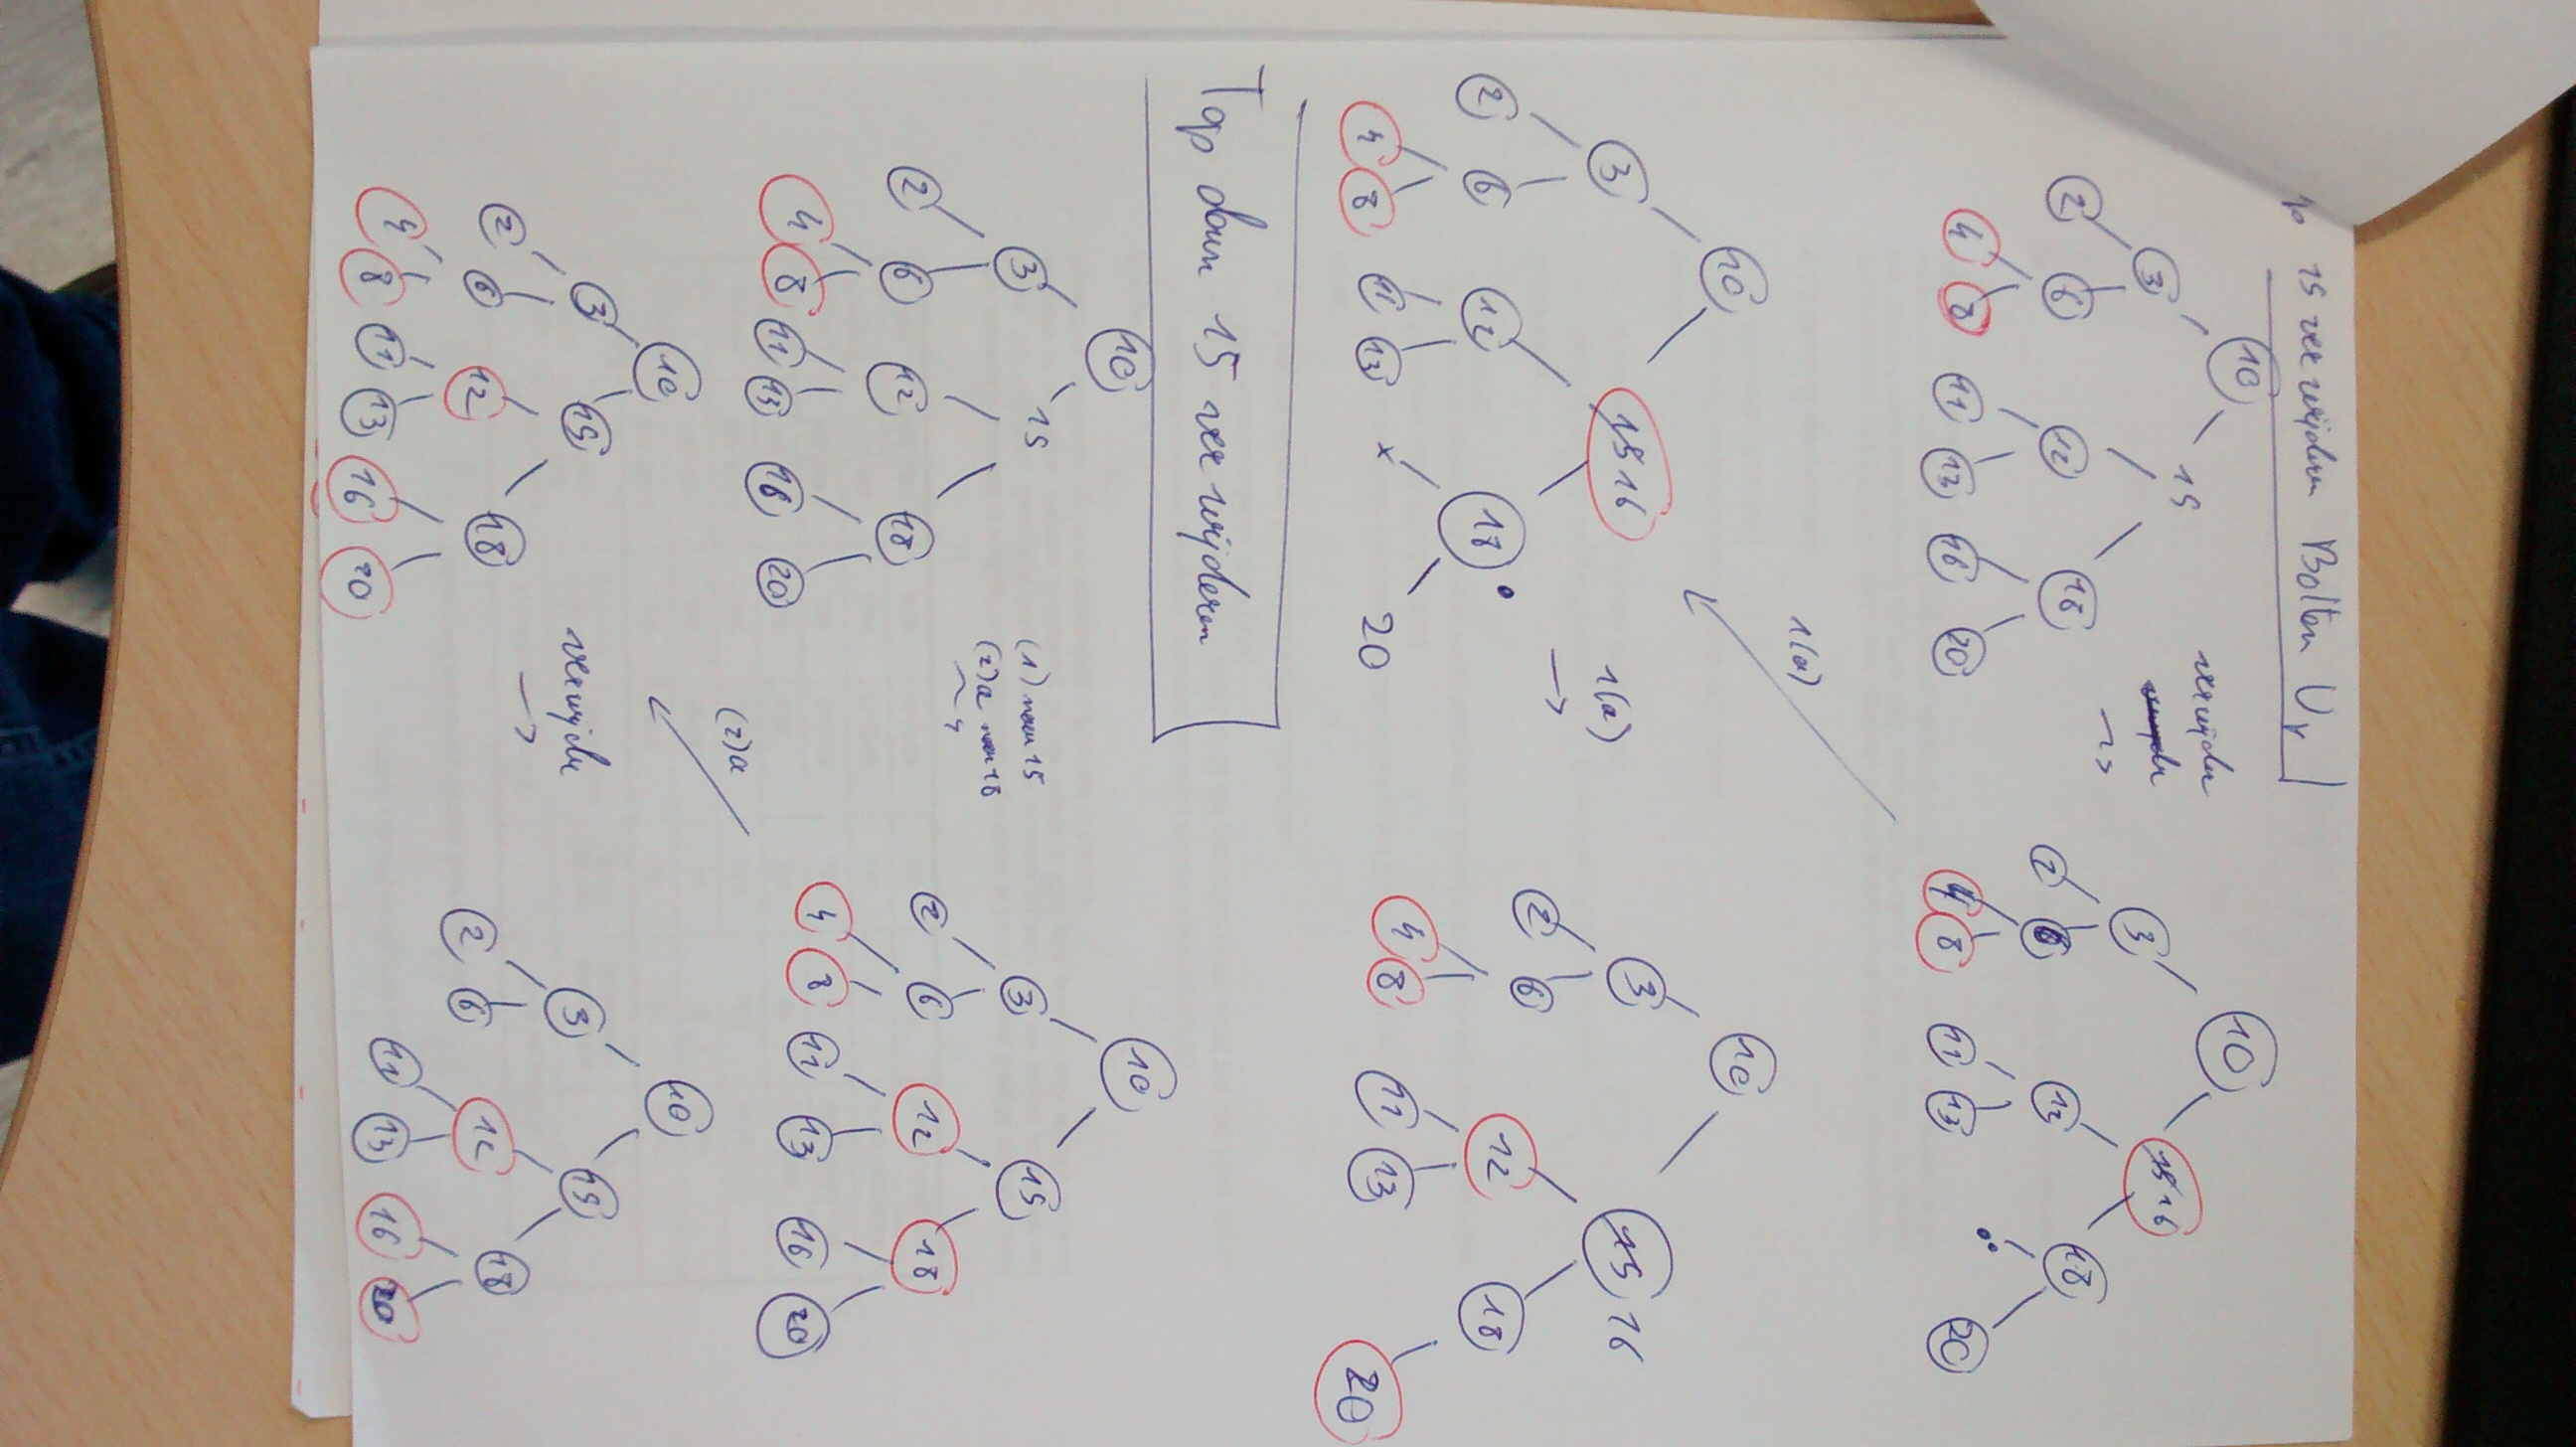 15 verwijderen Bottom Up
10
3 15
2 6 12 18
4 8 11 13 16 20
verwijder
→
10
3 15 16
2 6 12 18
4 8 11 13 20
1(a)
10
3 15 16
2 6 12 18
4 8 11 13 x 20
1(a)
→
10
3 15 16
2 6 12 18
4 8 11 13 20
Top down 15 verwijderen
10
3 15
2 6 12 18
4 8 11 13 16 20
(1) naar 15
(2)a naar 18
→
10
3 15
2 6 12 18
4 8 11 13 16 20
(2)a
10
3 15
2 6 12 18
4 8 11 13 16 20
verwijder
→
10
3 15
2 6 12 18
11 13 16 20